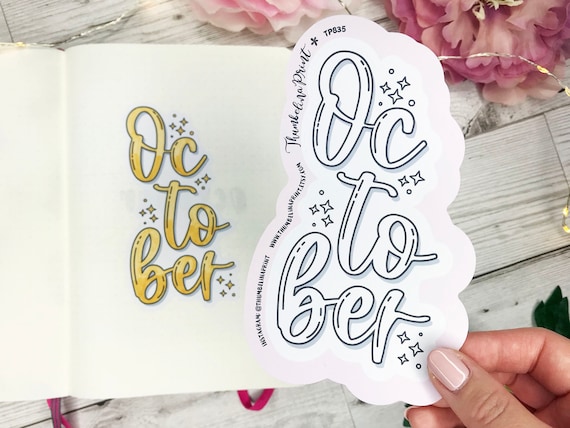 Oc
to
ber
TP835
Thumbelina Print
Oc
to
ber
INSTAGRAM: @THUMBELINAPRINT
WWW.THUMBELINAPRINT.ETSY.COM